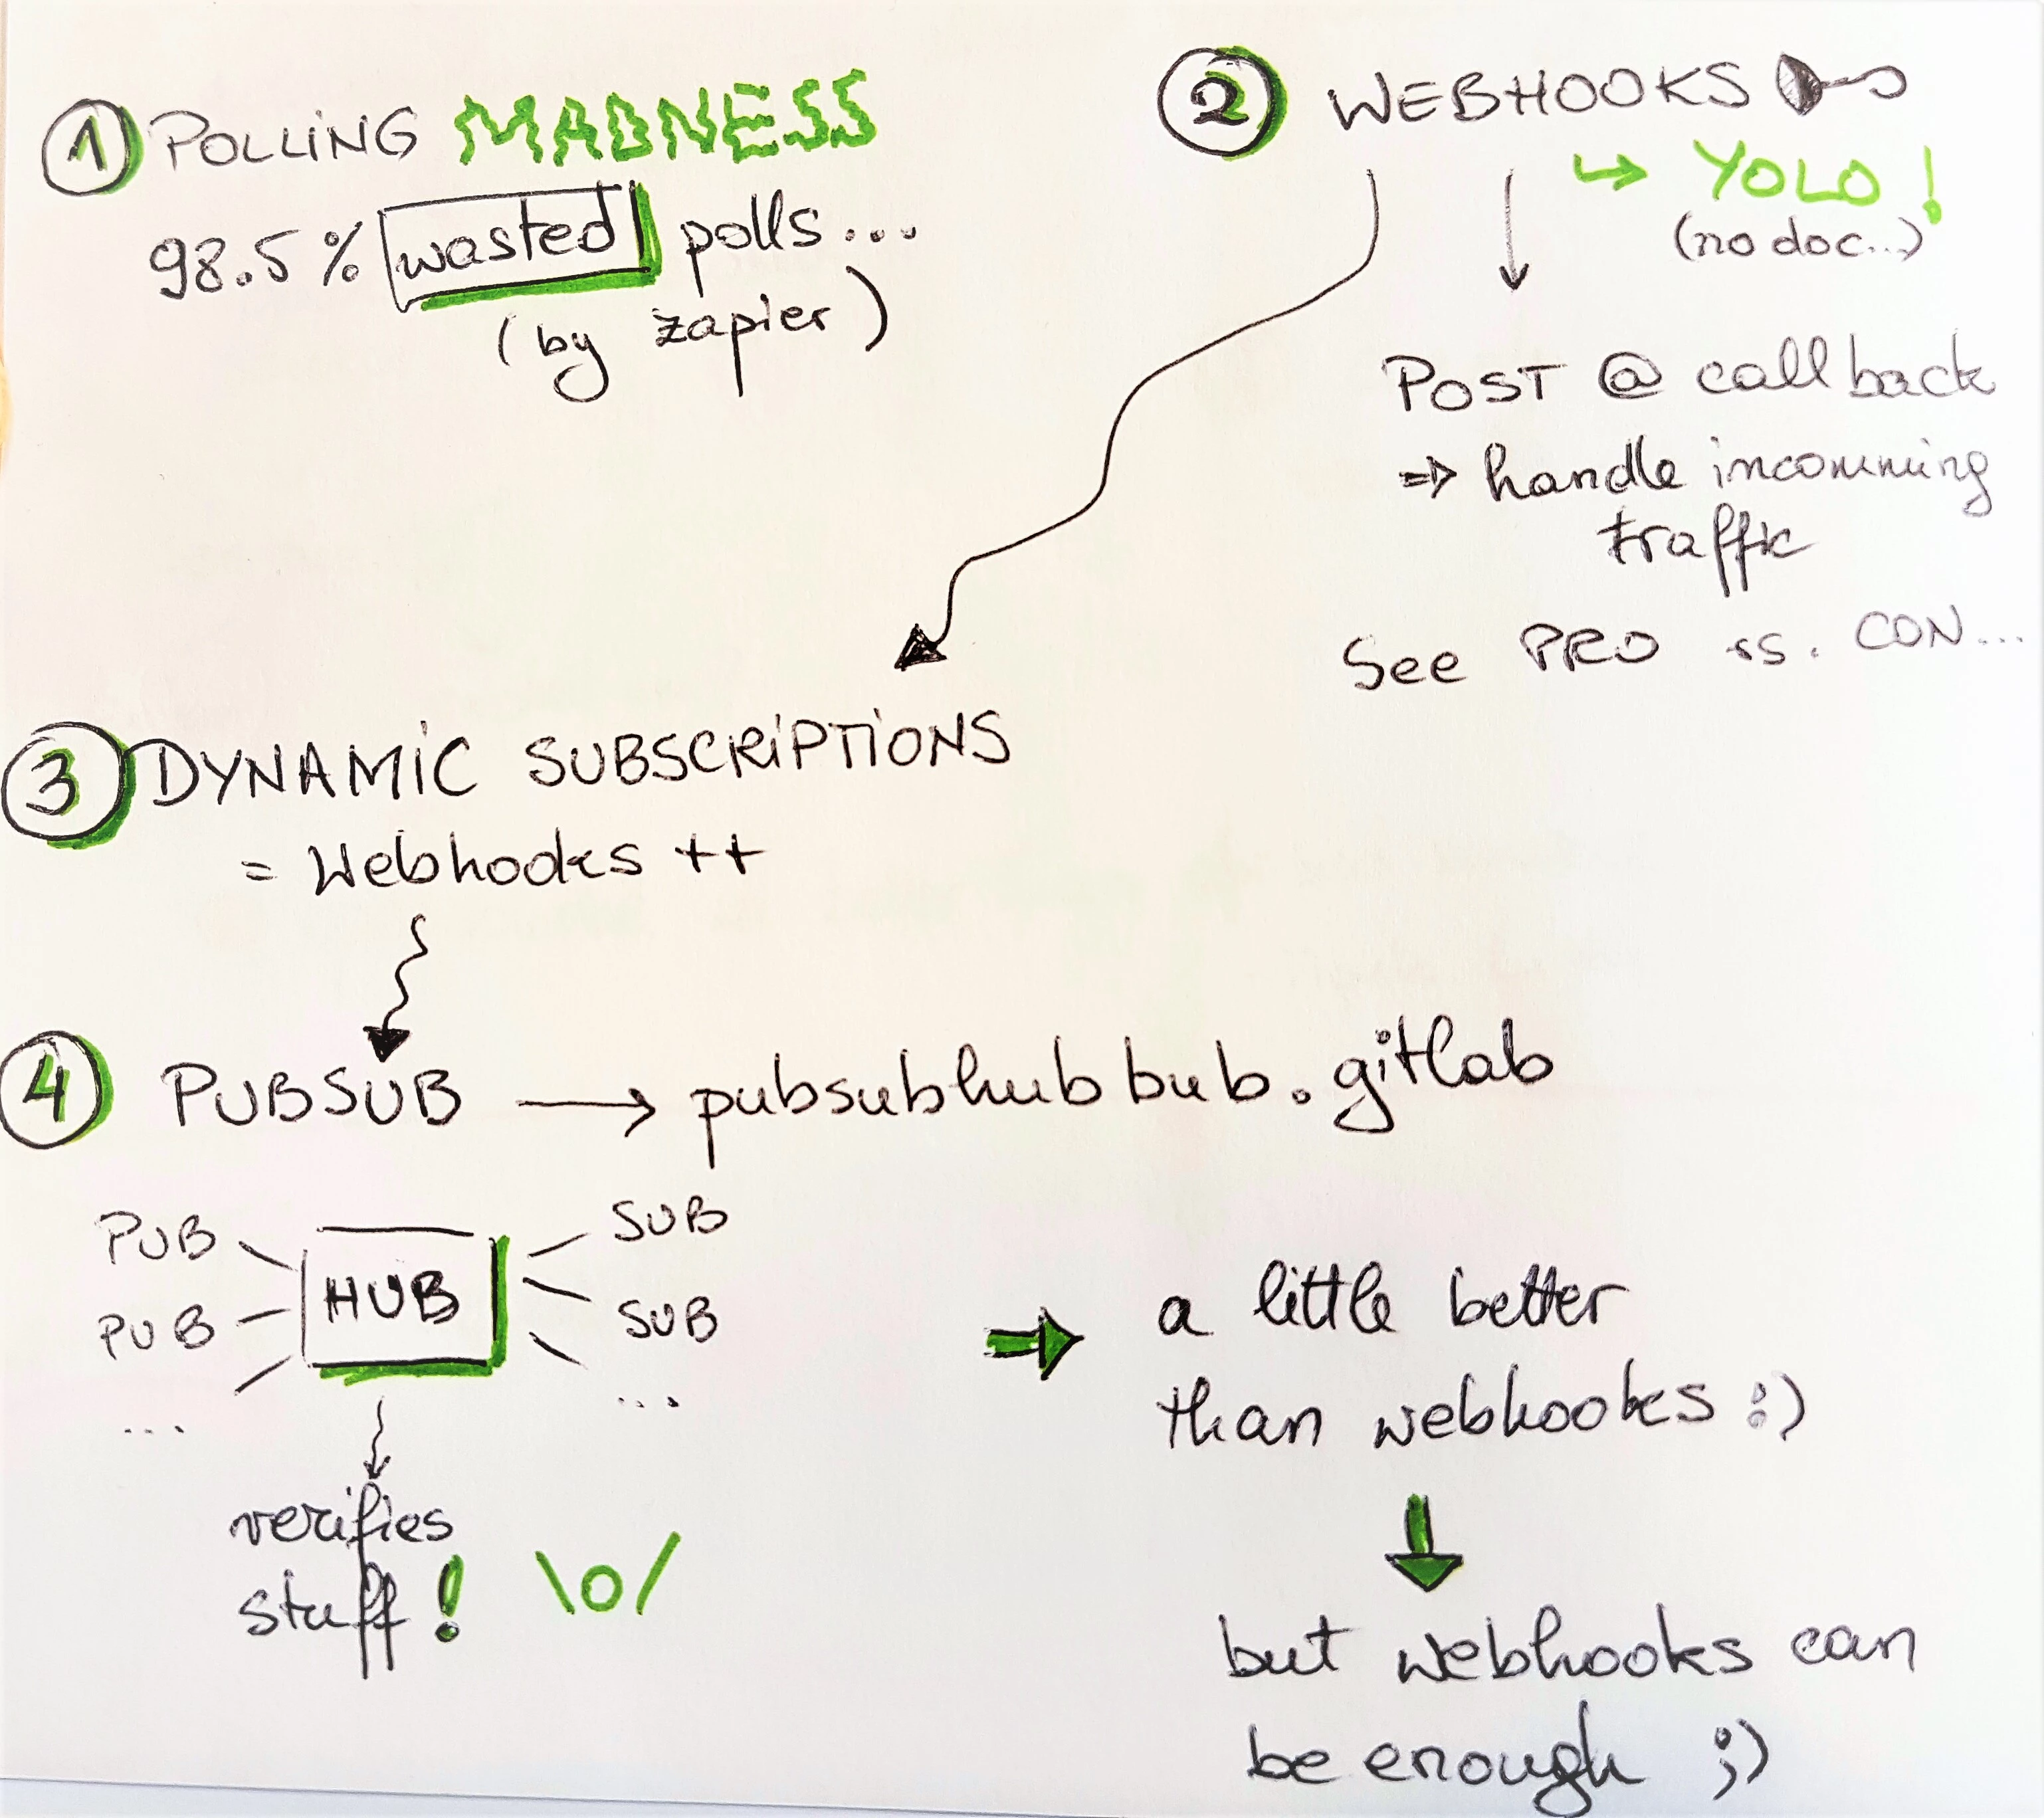 1 POLLING MADNESS
98.5% wasted polls...
(by zapier)
2 WEBHOOKS
↳ YOLO!
(no doc..)
POST @ callback
⇒ handle incomming
traffic
See PRO vs. CON...
3 DYNAMIC SUBSCRIPTIONS
= Webhooks ++
4 PUBSUB → pubsubhubbub.gitlab
PUB
PUB
...
HUB
SUB
SUB
...
verifies
stuff! \o/
→ a little better
than webhookes :)
↓
but webhooks can
be enough ;)